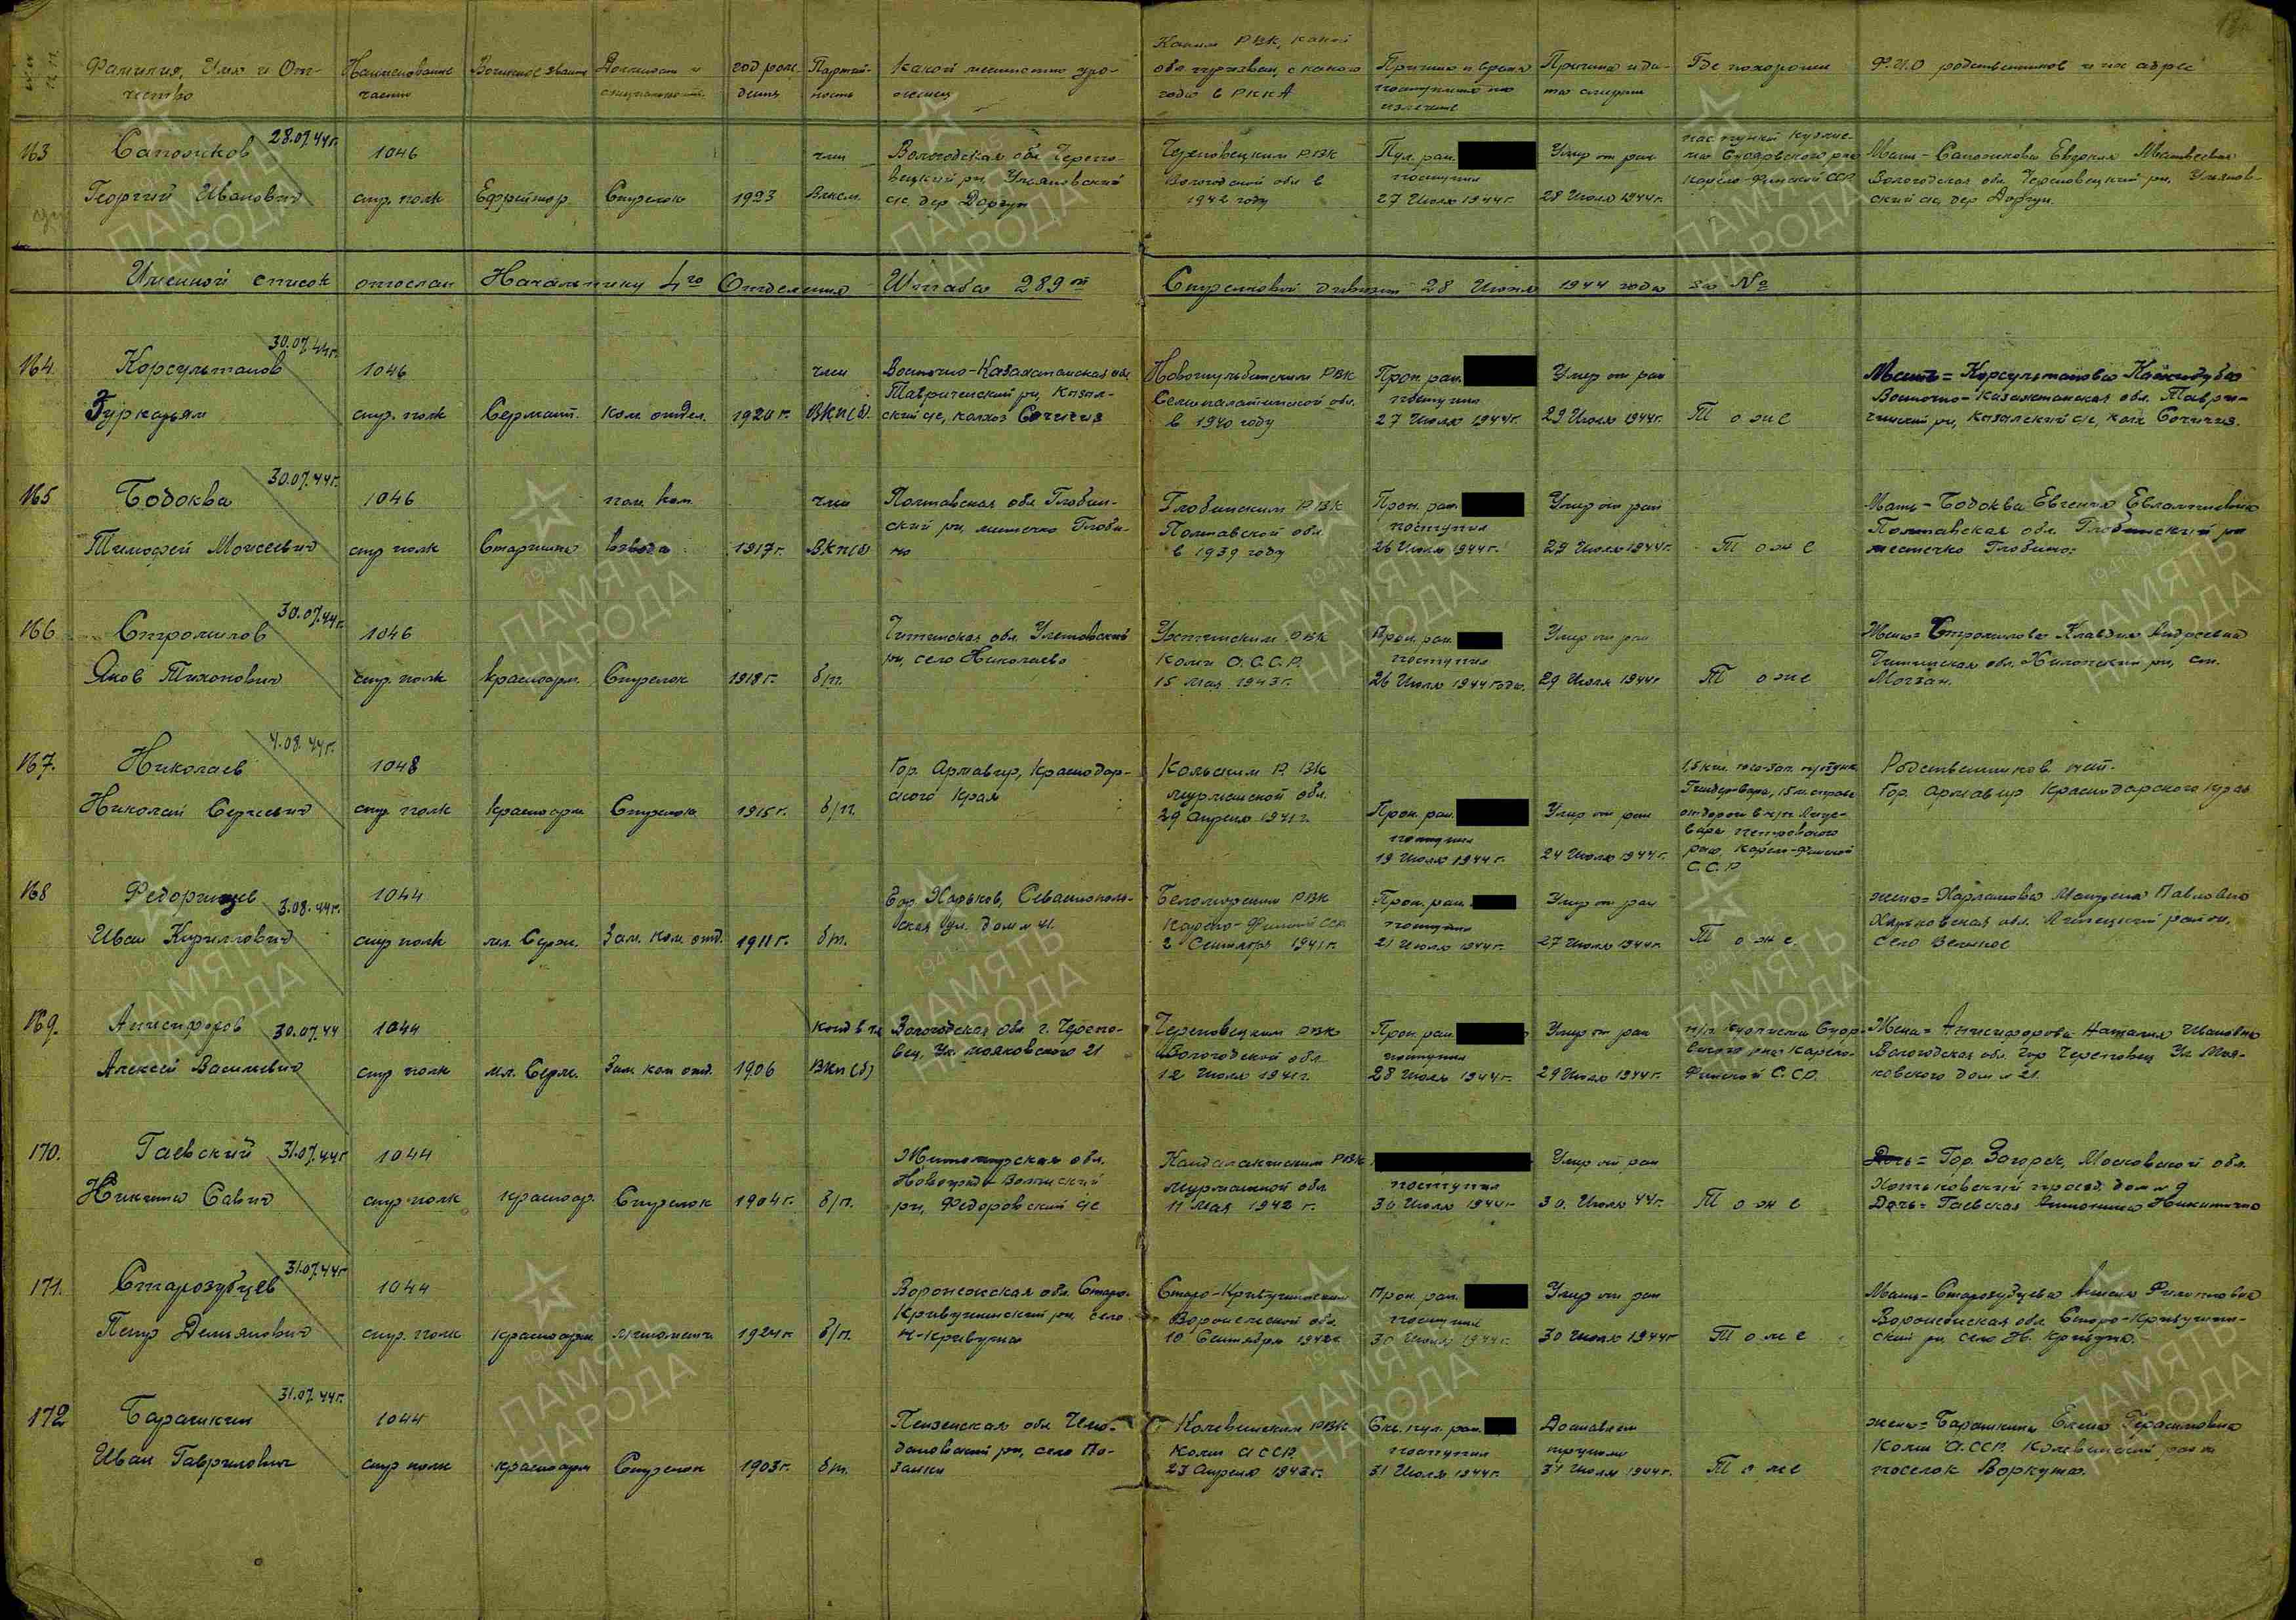 Фамилия, Имя и От-
чество
Наименование
части
Воинское звание
Должность и
специальность
год рож.
дения
Партий-
ность
Какой местности уро-
женец
Каким РВК, какой
обл. призван, с какого
года в РККА
Причина и время
поступления на
излечение
Причина и да-
та смерти
Где похоронен
Ф.И.О родственников и их адрес
163
Сапожков 28.07.44г.
Георгий Иванович
1046
стр. полк
Ефрейтор
Стрелок
1923
член
Влксм.
Вологодская обл. Черепо-
вецкий р-н, Ульяновский
с/с, дер Доргун
Череповецким РВК
Вологодской обл в
1942 году
Пул. ран.
поступил
27 Июля 1944г.
Умер от ран
28 Июля 1944г.
Карело-Финской ССР.
Мать - Сапожкова Евдокия Матвеевна
Вологодская обл. Череповецкий р-н, Ульянов-
ский с/с, дер Доргун.
Именной список отослан Начальнику 4го Отделения Штаба 289й Стрелковой дивизии 28 Июля 1944 года за №
164.
30.07.44г.
Корсультанов
1046
стр. полк
Сержант.
ком. отдел.
1920г.
член
ВКП(б).
Восточно-Казахстанская обл.
Таврический р-н,
Новошульбинским РВК
Семипалатинской обл.
в 1940 году
Прон. ран.
поступил
27 Июля 1944г.
Умер от ран
29 Июля 1944г.
Тоже
Мать = Корсультанова
Восточно-Казахстанская обл. Таври-
165
30.07.44г.
Бодоква
Тимофей Моисеевич
1046
стр полк
Старшина
пом. ком.
взвода
1917г.
член
ВКП(б)
Полтавская обл Глобин-
ский р-н, местечко Глоби-
но
Глобинским РВК
Полтавской обл.
в 1939 году
Прон. ран.
поступил
26 Июля 1944г.
Умер от ран
29 Июля 1944г.
Тоже
Мать - Бодоква Евгения Евлампиевна
Полтавская обл. Глобинский р-н
местечко Глобино.
166
30.07.44г.
Стромилов
Яков Тихонович
1046
стр. полк
красноарм.
Стрелок
1918г.
б/п.
Читинская обл. Улетовский
р-н, село Николаево
Ухтинским РВК
Коми А.С.С.Р.
15 мая 1943г.
Прон. ран.
поступил
26 Июля 1944 года.
Умер от ран
29 Июля 1944г
Тоже
Жена = Стромилова Клавдия
Читинская обл. Хилокский р-н, ст.
Могзон.
167.
4.08.44г.
Николаев
Николай Сергеевич
1048
стр полк
красноарм
Стрелок
1915г.
б/п.
Гор. Армавир, Краснодар-
ского края
Кольским РВК
Мурманской обл.
29 Апреля 1941г.
Прон. ран.
поступил
19 Июля 1944г.
Умер от ран
24 Июля 1944г.
Петровского
р-на Карело-Финской
С.С.Р
Родственников нет.
Гор. Армавир Краснодарского края
168
Федорищев 3.08.44г.
Иван Кириллович
1044
стр полк
мл. Серж.
Зам. ком. отд.
1911г.
б/п.
Гор. Харьков, Севастополь-
ская ул. дом № 41.
Беломорским РВК
Карело-Финской ССР
2 Сентября 1941г.
Прон. ран.
поступил
21 Июля 1944г.
Умер от ран
27 Июля 1944г.
Тоже.
жена = Харламова Матрена Павловна
Харьковская обл. район.
село Великое
169.
Анисифоров 30.07.44
Алексей Васильевич
1044
стр полк
мл. Серж.
Зам. ком отд.
1906
ВКП(б)
Вологодская обл г. Черепо-
вец, Ул. Маяковского 21
Череповецким РВК
Вологодской обл
12 Июля 1941г.
Прон. ран.
поступил
28 Июля 1944г.
Умер от ран
29 Июля 1944г.
Финской С.С.Р.
Жена = Анисифорова Наталия Ивановна
Вологодская обл. Гор Череповец Ул. Мая-
ковского дом № 21.
170.
Гаевский 31.07.44г
Никита Савич
1044
стр полк
красноар.
Стрелок
1904г.
б/п.
Житомирская обл.
Новоград-Волынский
р-н, Федоровский с/с
Кандалакшским РВК
Мурманской обл
11 мая 1942 г.
поступил
30 Июля 1944г
Умер от ран
30. Июля 44г.
Тоже
Дочь = Гор. Загорск, Московской обл.
Хотьковский проезд, дом № 9
Дочь = Гаевская Антонина Никитична
171.
31.07.44г
Старозубцев
Петр Демьянович
1044
стр. полк
красноарм
1924г
б/п.
Воронежская обл. Старо-
Криушинский р-н, село
Н-Криуша
Старо-Криушинским
Воронежской обл.
10 Сентября 1942г
Прон. ран.
поступил
30 Июля 1944г.
Умер от ран
30 Июля 1944г
Тоже
Мать - Старозубцева Филипповна
Воронежская обл. Старо-Криушин-
ский р-н, село Н. Криуша.
172
31.07.44г.
Барашкин
Иван Гаврилович
1044
стр полк
красноарм
Стрелок
1903г.
б/п.
Пензенская обл
село По-
Кожвинским РВК
Коми АССР.
23 Апреля 1943г.
Скв. пул. ран.
поступил
31 Июля 1944г.
Доставлен
трупом
31 Июля 1944г.
Тоже
жена = Барашкина Елена Герасимовна
Коми А.ССР. Кожвинский район
поселок Воркута.
ПАМЯТЬ
НАРОДА